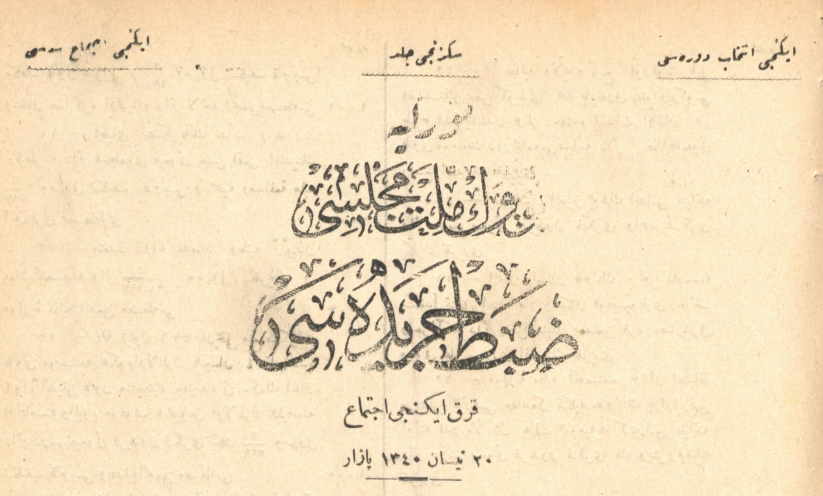 ایكنجی انتخاب دوره‌سی
سكزنجی جلد
ایكنجی اجتماع سنه‌سی
توركیه
بیوك ملت مجلسی
ضبط جریده‌سی
قرق ایكنجی اجتماع
۲۰ نیسان ۱۳٤۰ پازار